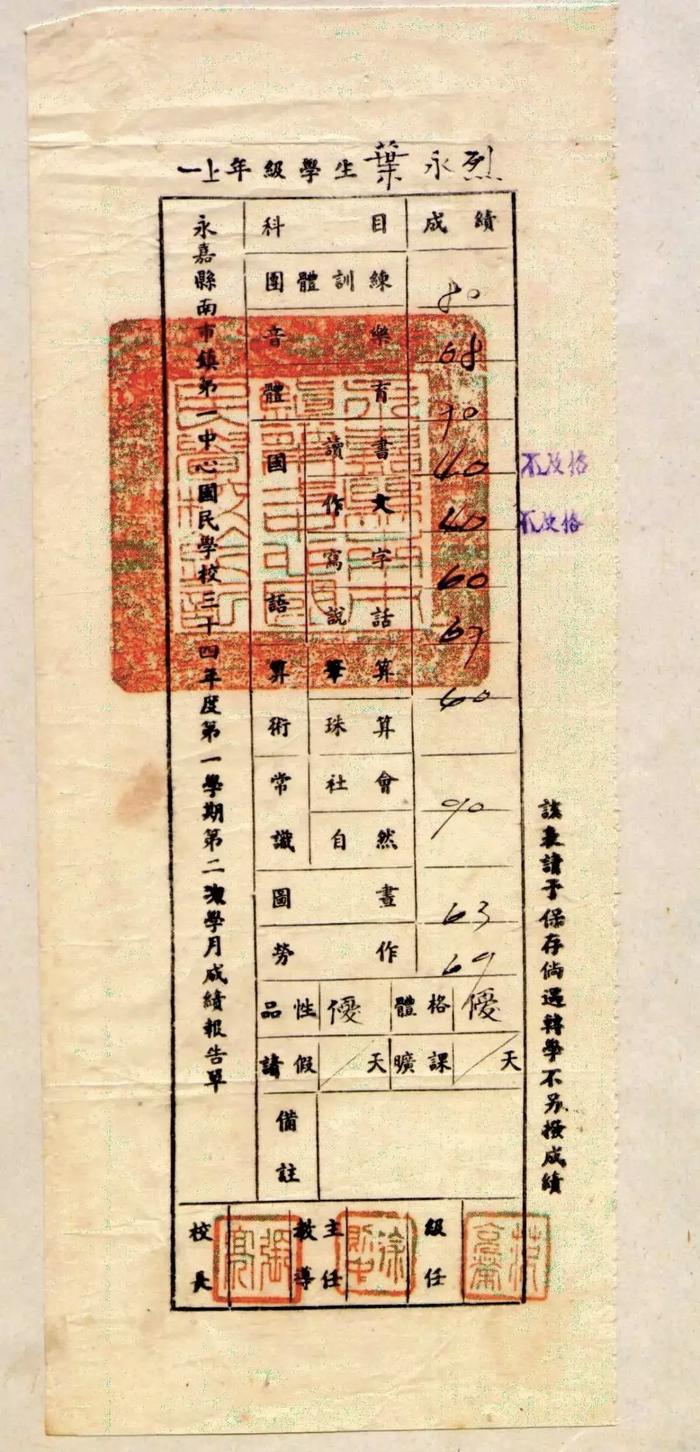 一上年級學生葉永烈
永嘉縣南市鎮第一中心國民學校三十四年度第一學期第二次學月成績報告單
科目 成績
團體訓練 80
音樂 68
體育 70
國語 讀書 40 不及格
作文 40 不及格
寫字 60
說話 67
算術 筆算 60
珠算
常識 社會 90
自然
圖畫 63
勞作 69
品性 優 體格 優
請假 / 天 曠課 / 天
備註
校長 張亮 教導主任 徐 級任
該表請予保存倘遇轉學不另撥成績